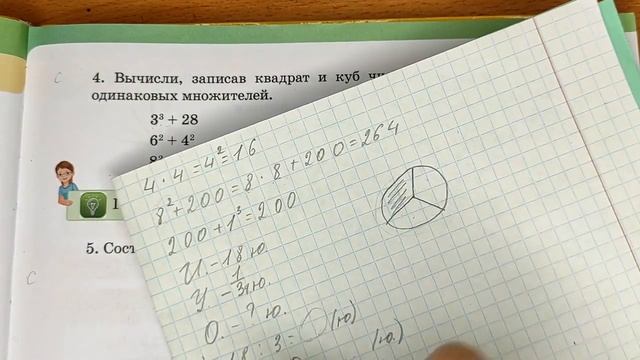 4. Вычисли, записав квадрат и куб
одинаковых множителей.
3³ + 28
6² + 4²
8²
1
5. Сост
4 · 4 = 4² = 16
8² + 200 = 8 · 8 + 200 = 264
200 + 1³ = 200
И. – 18 ю.
У – 1/3 ю.
О. – ? ю.
18 : 3 = (ю)
(ю.)